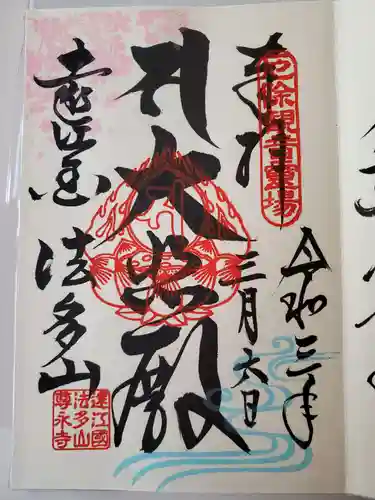 奉拝
厄除觀音靈場
令和三年
三月六日
大悲殿
遠江国 法多山
遠江國
法多山
尊永寺